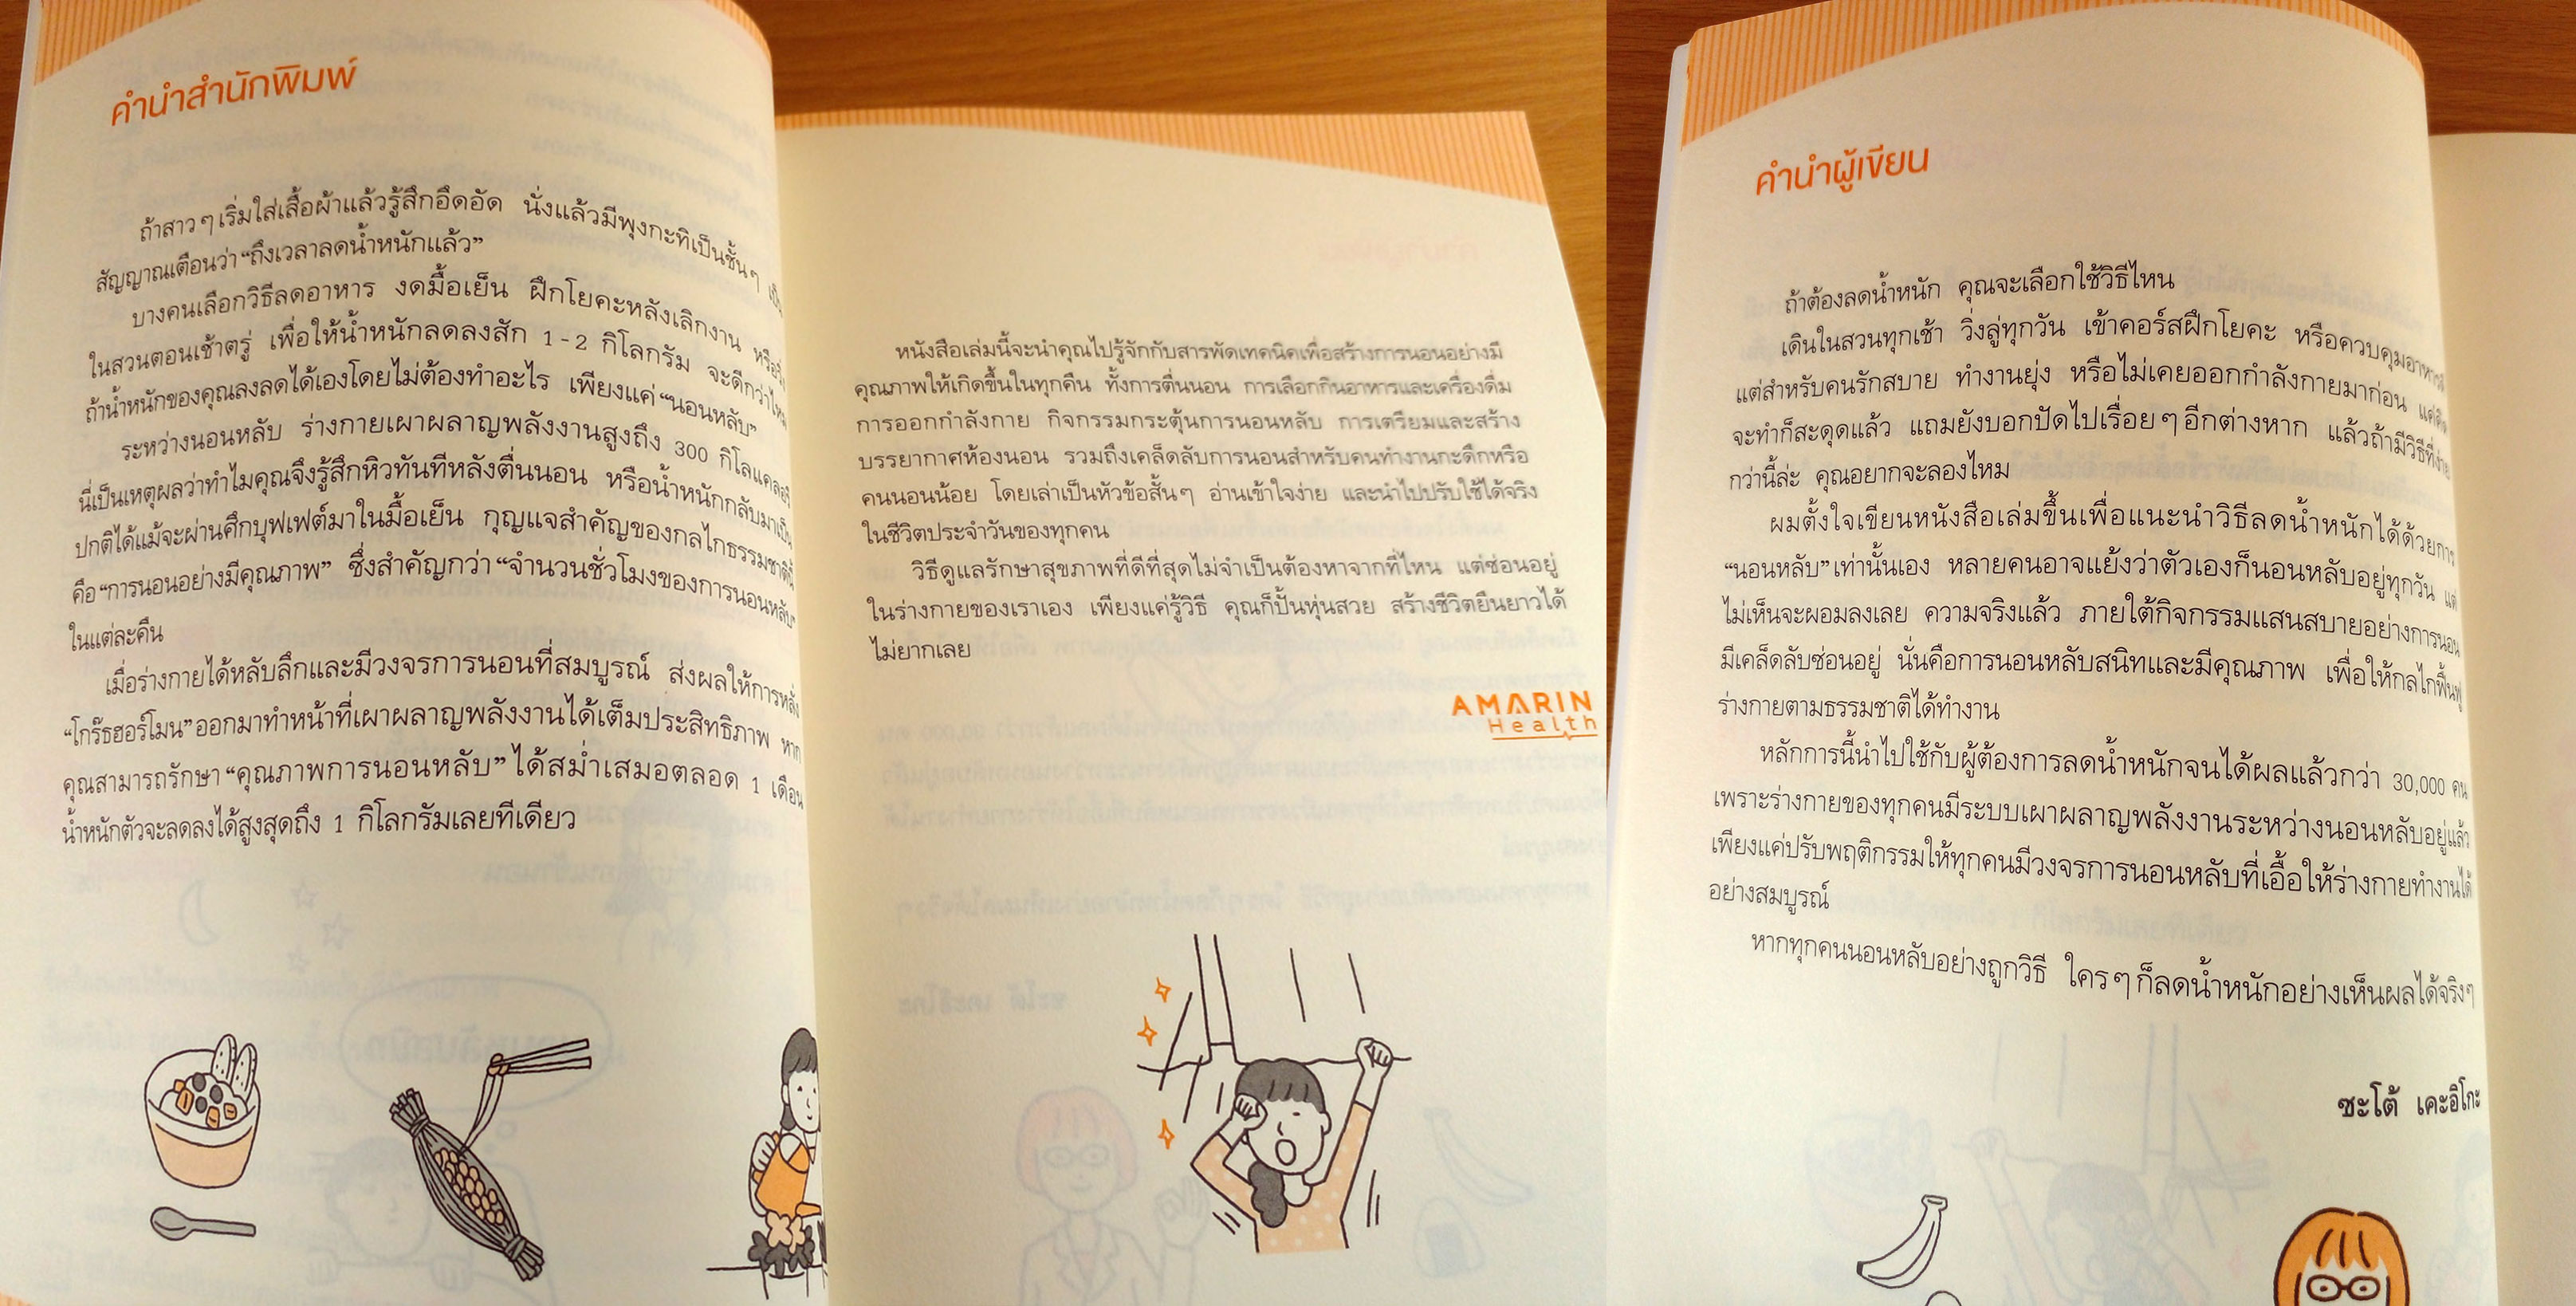 คำนำสำนักพิมพ์
ถ้าสาวๆ เริ่มใส่เสื้อผ้าแล้วรู้สึกอึดอัด นั่งแล้วมีพุงกะทิเป็นชั้นๆ เป็น
สัญญาณเตือนว่า “ถึงเวลาลดน้ำหนักแล้ว”
บางคนเลือกวิธีลดอาหาร งดมื้อเย็น ฝึกโยคะหลังเลิกงาน หรือวิ่ง
ในสวนตอนเช้าตรู่ เพื่อให้น้ำหนักลดลงสัก 1 - 2 กิโลกรัม จะดีกว่าไหม
ถ้าน้ำหนักของคุณลงลดได้เองโดยไม่ต้องทำอะไร เพียงแค่ “นอนหลับ”
ระหว่างนอนหลับ ร่างกายเผาผลาญพลังงานสูงถึง 300 กิโลแคลอรี
นี่เป็นเหตุผลว่าทำไมคุณจึงรู้สึกหิวทันทีหลังตื่นนอน หรือน้ำหนักกลับมาเป็น
ปกติได้แม้จะผ่านศึกบุฟเฟต์มาในมื้อเย็น กุญแจสำคัญของกลไกธรรมชาตินี้
คือ “การนอนอย่างมีคุณภาพ” ซึ่งสำคัญกว่า “จำนวนชั่วโมงของการนอนหลับ”
ในแต่ละคืน
เมื่อร่างกายได้หลับลึกและมีวงจรการนอนที่สมบูรณ์ ส่งผลให้การหลั่ง
“โกร๊ธฮอร์โมน” ออกมาทำหน้าที่เผาผลาญพลังงานได้เต็มประสิทธิภาพ หาก
คุณสามารถรักษา “คุณภาพการนอนหลับ” ได้สม่ำเสมอตลอด 1 เดือน
น้ำหนักตัวจะลดลงได้สูงสุดถึง 1 กิโลกรัมเลยทีเดียว
หนังสือเล่มนี้จะนำคุณไปรู้จักกับสารพัดเทคนิคเพื่อสร้างการนอนอย่างมี
คุณภาพให้เกิดขึ้นในทุกคืน ทั้งการตื่นนอน การเลือกกินอาหารและเครื่องดื่ม
การออกกำลังกาย กิจกรรมกระตุ้นการนอนหลับ การเตรียมและสร้าง
บรรยากาศห้องนอน รวมถึงเคล็ดลับการนอนสำหรับคนทำงานกะดึกหรือ
คนนอนน้อย โดยเล่าเป็นหัวข้อสั้นๆ อ่านเข้าใจง่าย และนำไปปรับใช้ได้จริง
ในชีวิตประจำวันของทุกคน
วิธีดูแลรักษาสุขภาพที่ดีที่สุดไม่จำเป็นต้องหาจากที่ไหน แต่ซ่อนอยู่
ในร่างกายของเราเอง เพียงแค่รู้วิธี คุณก็ปั้นหุ่นสวย สร้างชีวิตยืนยาวได้
ไม่ยากเลย
AMARIN
Health
คำนำผู้เขียน
ถ้าต้องลดน้ำหนัก คุณจะเลือกใช้วิธีไหน
เดินในสวนทุกเช้า วิ่งลู่ทุกวัน เข้าคอร์สฝึกโยคะ หรือควบคุมอาหาร
แต่สำหรับคนรักสบาย ทำงานยุ่ง หรือไม่เคยออกกำลังกายมาก่อน แค่คิด
จะทำก็สะดุดแล้ว แถมยังบอกปัดไปเรื่อยๆ อีกต่างหาก แล้วถ้ามีวิธีที่ง่าย
กว่านี้ล่ะ คุณอยากจะลองไหม
ผมตั้งใจเขียนหนังสือเล่มขึ้นเพื่อแนะนำวิธีลดน้ำหนักได้ด้วยการ
“นอนหลับ” เท่านั้นเอง หลายคนอาจแย้งว่าตัวเองก็นอนหลับอยู่ทุกวัน แต่
ไม่เห็นจะผอมลงเลย ความจริงแล้ว ภายใต้กิจกรรมแสนสบายอย่างการนอน
มีเคล็ดลับซ่อนอยู่ นั่นคือการนอนหลับสนิทและมีคุณภาพ เพื่อให้กลไกฟื้นฟู
ร่างกายตามธรรมชาติได้ทำงาน
หลักการนี้นำไปใช้กับผู้ต้องการลดน้ำหนักจนได้ผลแล้วกว่า 30,000 คน
เพราะร่างกายของทุกคนมีระบบเผาผลาญพลังงานระหว่างนอนหลับอยู่แล้ว
เพียงแค่ปรับพฤติกรรมให้ทุกคนมีวงจรการนอนหลับที่เอื้อให้ร่างกายทำงานได้
อย่างสมบูรณ์
หากทุกคนนอนหลับอย่างถูกวิธี ใครๆ ก็ลดน้ำหนักอย่างเห็นผลได้จริงๆ
ซะโต้ เคะอิโกะ